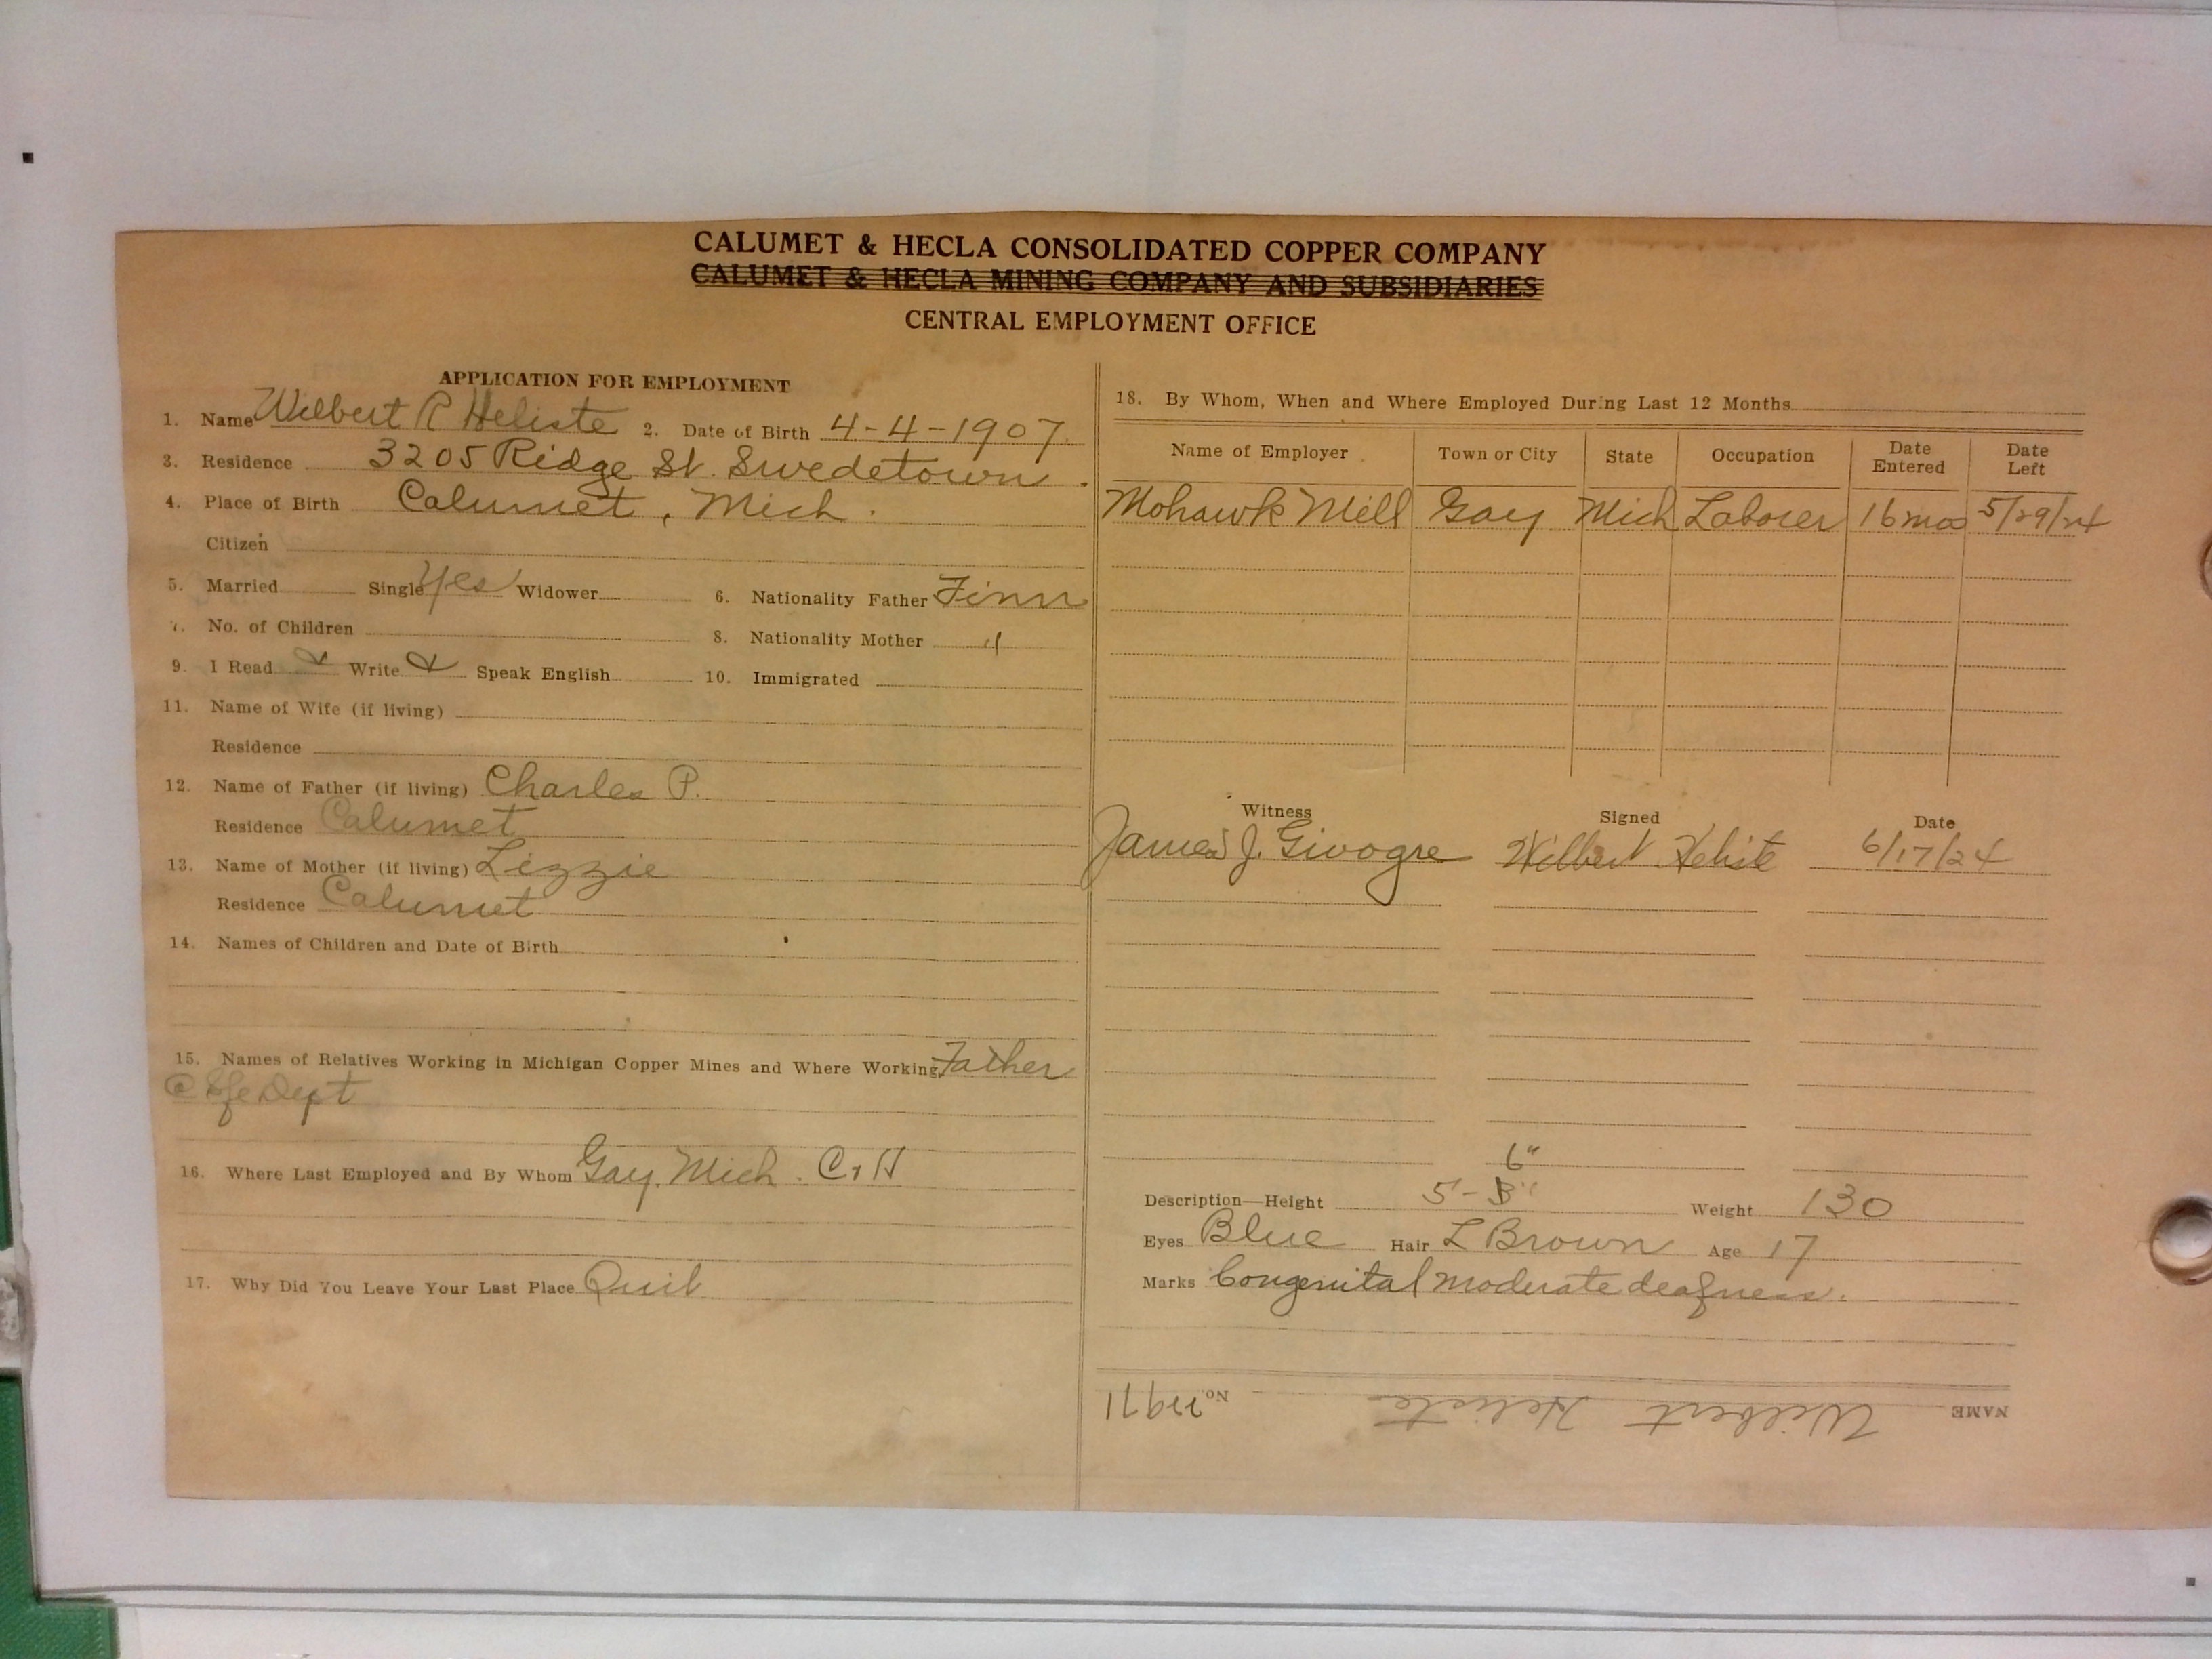 CALUMET & HECLA CONSOLIDATED COPPER COMPANY
CALUMET & HECLA MINING COMPANY AND SUBSIDIARIES
CENTRAL EMPLOYMENT OFFICE
APPLICATION FOR EMPLOYMENT
1. Name Wilbert R Heliste 2. Date of Birth 4-4-1907
3. Residence 3205 Ridge St. Swedetown.
4. Place of Birth Calumet, Mich.
Citizen
5. Married Single Yes Widower 6. Nationality Father Finn
7. No. of Children 8. Nationality Mother "
9. I Read Write Speak English 10. Immigrated
11. Name of Wife (if living)
Residence
12. Name of Father (if living) Charles P.
Residence Calumet
13. Name of Mother (if living) Lizzie
Residence Calumet
14. Names of Children and Date of Birth
15. Names of Relatives Working in Michigan Copper Mines and Where Working Father
Dept
16. Where Last Employed and By Whom Gay, Mich. C & H
17. Why Did You Leave Your Last Place Quit
18. By Whom, When and Where Employed During Last 12 Months
Name of Employer Town or City State Occupation Date Entered Date Left
Mohawk Mill Gay Mich Laborer 16 mos 5/29/24
Witness Signed Date
James J. Givogre Wilbert Heliste 6/17/24
6"
Description—Height 5'-3" Weight 130
Eyes Blue Hair L Brown Age 17
Marks Congenital moderate deafness.
NAME Wilbert Heliste No.